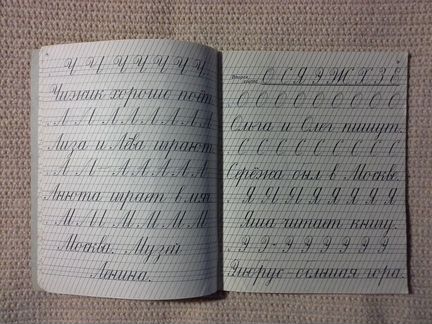 Ч Ч Ч Ч Ч Ч Ч
Чижик хорошо поёт.
Л Л Л Л Л Л Л
Лиза и Лёва играют.
А А А А А А А
Анюта играет в мяч.
М М М М М М М
Москва. Музей
Ленина.
О С Я Э Ж Х З Е
О О О О О О О О О
Ольга и Олег пишут.
С С С С С С С С С
Серёжа был в Москве.
Я Я Я Я Я Я Я Я
Яша читает книгу.
Э Э Э Э Э Э Э Э
Эльбрус большая гора.